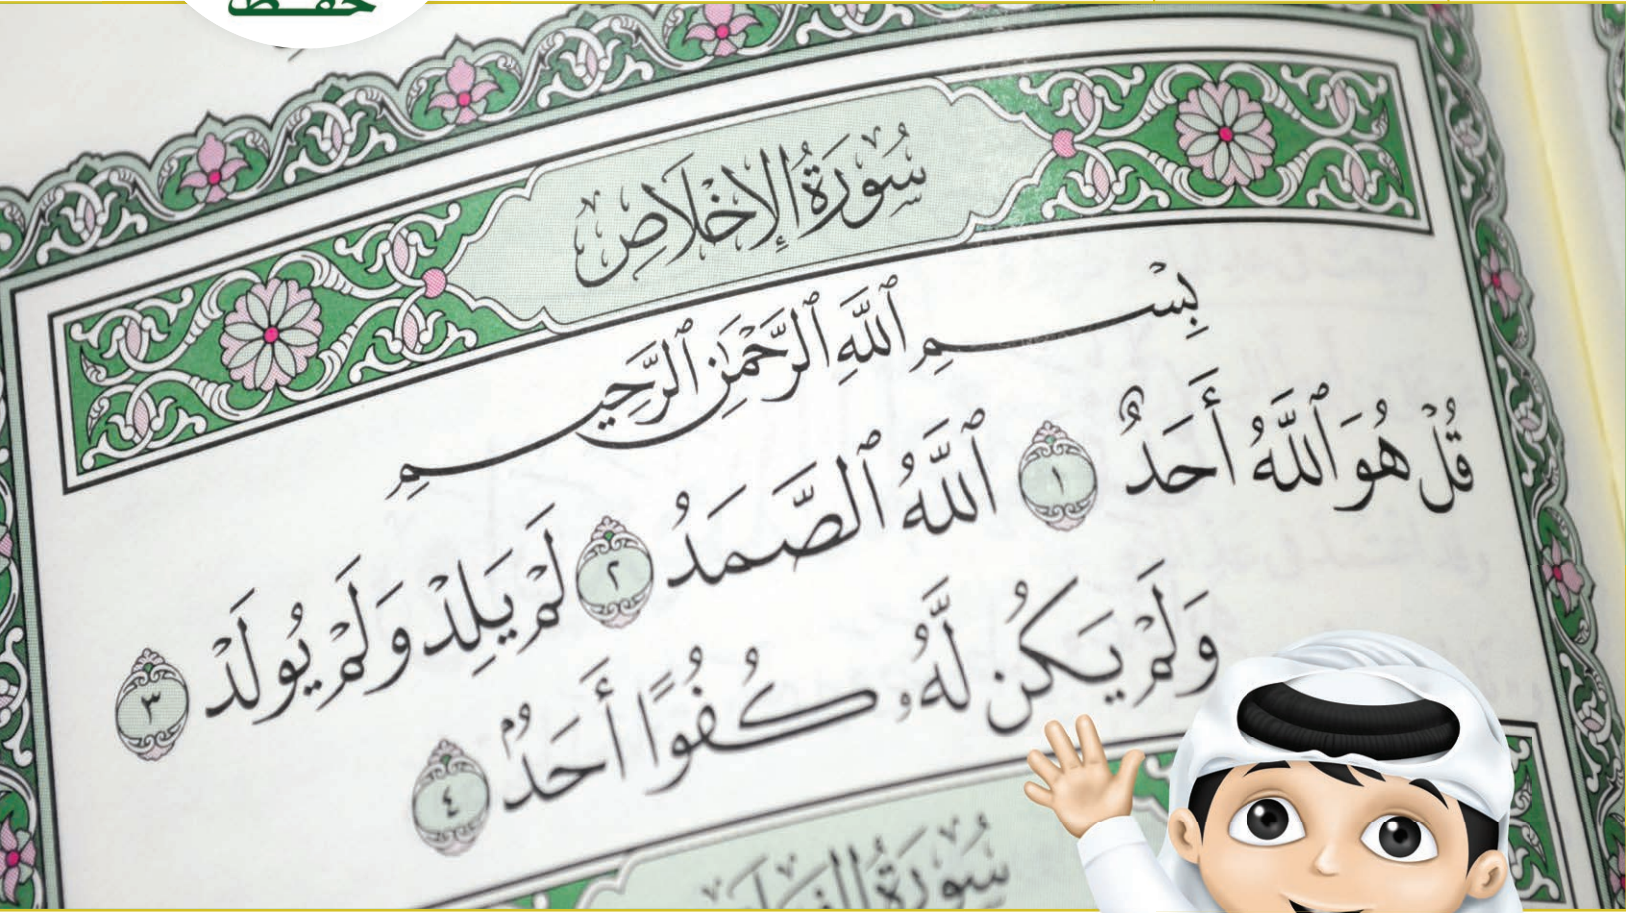 حفظ
سُورَةُ الإِخْلَاصِ
بِسْمِ ٱللَّهِ ٱلرَّحْمَٰنِ ٱلرَّحِيمِ
قُلْ هُوَ ٱللَّهُ أَحَدٌ ١ ٱللَّهُ ٱلصَّمَدُ ٢ لَمْ يَلِدْ وَلَمْ يُولَدْ ٣
وَلَمْ يَكُن لَّهُۥ كُفُوًا أَحَدٌۢ ٤
سُورَةُ